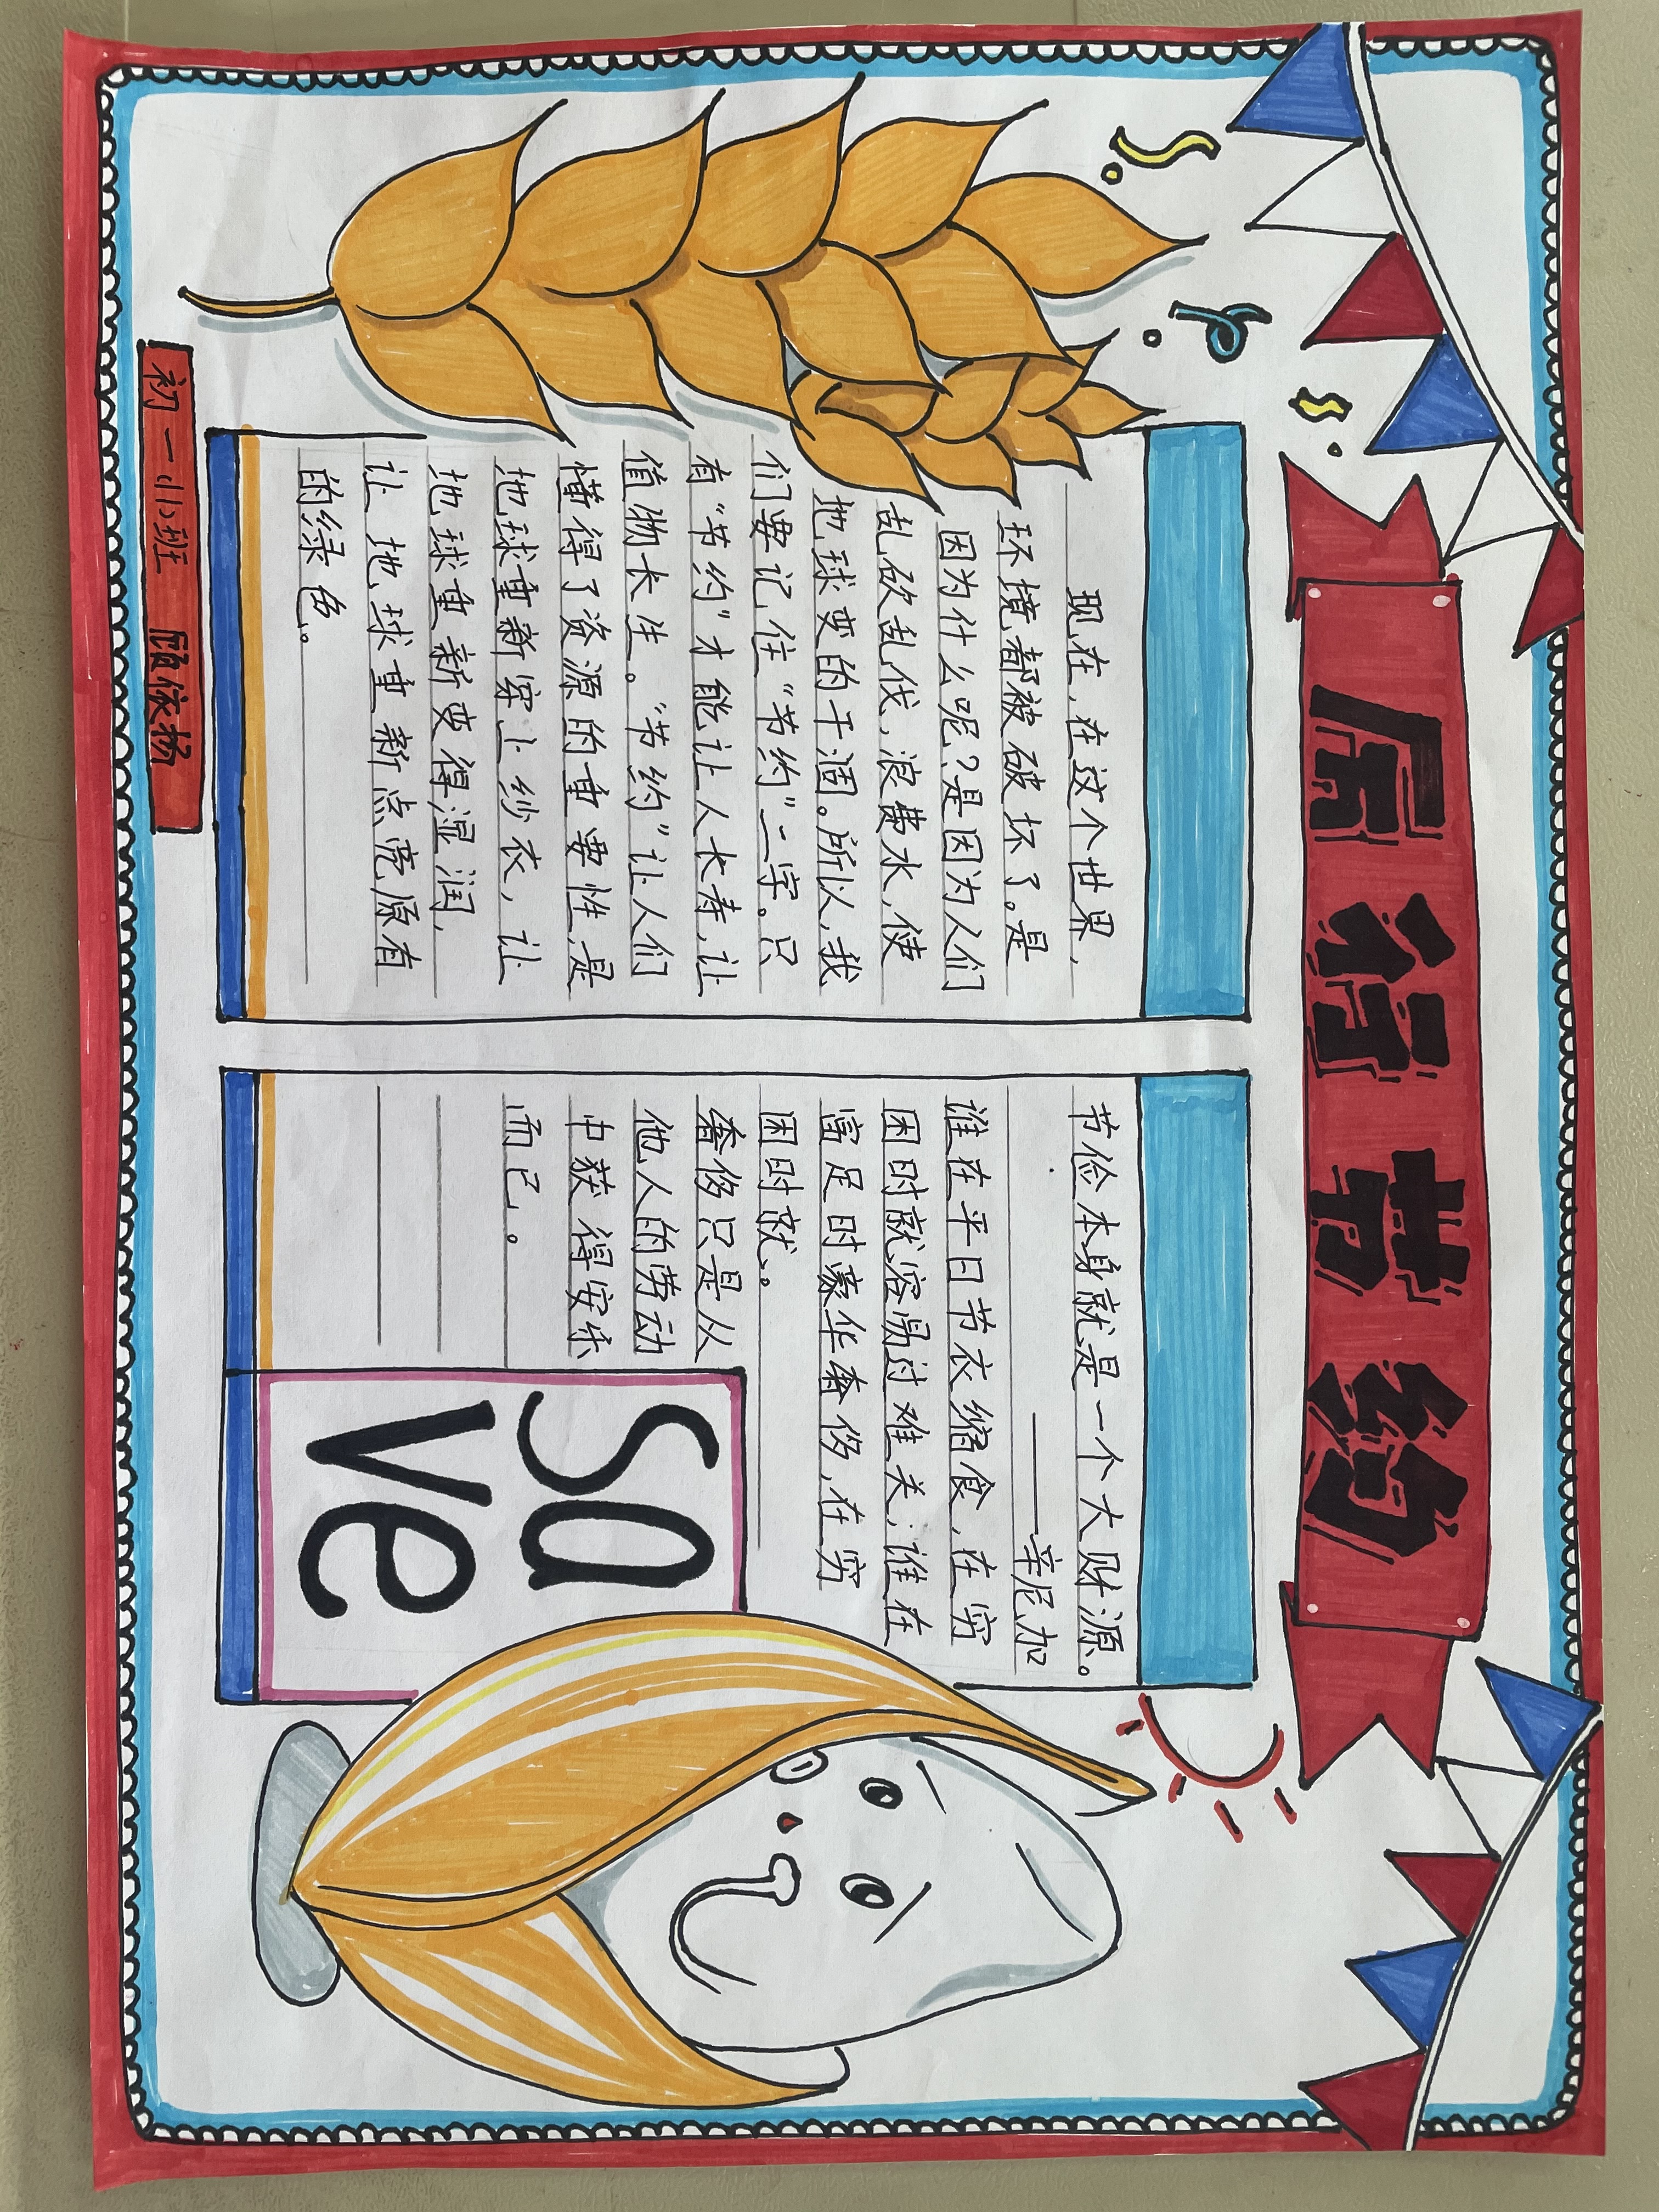 厉行节约
现在,在这个世界,
环境都被破坏了。是
因为什么呢?是因为人们
乱砍乱伐,浪费水,使
地球变的干涸。所以,我
们要记住“节约”二字。只
有“节约”才能让人长寿,让
值物长生。“节约”让人们
懂得了资源的重要性,是
地球重新穿上纱衣,让
地球重新变得湿润,
让地球重新点亮原有
的绿色。
节俭本身就是一个大财源。
——辛尼加
谁在平日节衣缩食,在穷
困时就容易过难关;谁在
富足时豪华奢侈,在穷
困时就。
奢侈只是从
他人的劳动
中获得安乐
而已。
Sa
ve
初一(1)班 顾依杨